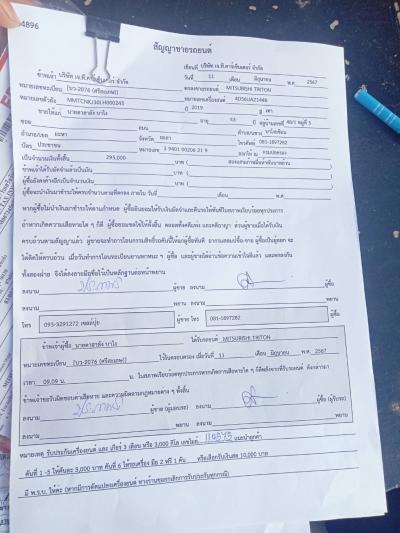 4896
สัญญาขายรถยนต์
เขียนที่ บริษัท เจ.ที.คาร์เซ็นเตอร์ จำกัด
วันที่ 11 เดือน มิถุนายน พ.ศ. 2567
ข้าพเจ้า บริษัท เจ.ที.คาร์เซ็นเตอร์ จำกัด
หมายเลขทะเบียน [1บว-2076 (ศรีสะเกษ)] ของรถยนต์ MITSUBISHI TRITON
หมายเลขตัวถัง หมายเลขเครื่องยนต์
ปี 2019 สี เทา
ขายให้แก่ นายดาฮาลัง บาโง อายุ 53 ปี อยู่บ้านเลขที่ 40/1 หมู่ที่ 5
ซอย ถนน ตำบล/แขวง
อำเภอ/เขต ยะหา จังหวัด ยะลา โทรศัพท์ 081-1097282
บัตร ประชาชน หมายเลข 3 9401 00206 21 9
เป็นจำนวนเงินทั้งสิ้น 295,000 บาท ( สองแสนเก้าหมื่นห้าพันบาทถ้วน )
ข้าพเจ้าได้รับมัดจำแล้วเป็นเงิน บาท ( )
ผู้ซื้อยังคงค้างอีกเป็นจำนวนเงิน บาท ( )
ผู้ซื้อจะนำเงินมาชำระให้ครบจำนวนตามที่ตกลง ภายใน วันที่ เดือน พ.ศ.
หากผู้ซื้อไม่นำเงินมาชำระให้ตามกำหนด ผู้ซื้อยินยอมให้รับเงินมัดจำและคืนรถได้ทันทีในสภาพเรียบร้อยทุกประการ
ถ้าหากเกิดความเสียหายใด ๆ ก็ดี ผู้ซื้อยอมชดใช้ให้ทั้งสิ้น ตลอดทั้งคดีแพ่ง และคดีอาญา ส่วนผู้ขายเมื่อได้รับเงิน
ครบถ้วนตามสัญญาแล้ว ผู้ขายจะทำการโอนกรรมสิทธิ์รถคันนี้ให้แก่ผู้ซื้อทันที
ทั้งสองฝ่าย จึงได้ลงลายมือชื่อไว้เป็นหลักฐานต่อหน้าพยาน
ลงนาม ผู้ขาย ลงนาม ผู้ซื้อ
ลงนาม พยาน ลงนาม พยาน
โทร 093-3291272 ผู้ขาย โทร 081-1097282 ผู้ซื้อ
ข้าพเจ้าผู้ซื้อ นายดาฮาลัง บาโง ได้รับรถยนต์ MITSUBISHI TRITON
หมายเลขทะเบียน [1บว-2076 (ศรีสะเกษ)] ไว้ในครอบครอง เมื่อวันที่ 11 เดือน มิถุนายน พ.ศ. 2567
เวลา 09.09 น.
ข้าพเจ้าขอรับผิดชอบค่าเสียหาย และความผิดทางกฎหมายต่าง ๆ ทั้งสิ้น
ลงนาม ผู้ขาย (ผู้มอบรถ) ลงนาม ผู้ซื้อ (ผู้รับรถ)
ลงนาม พยาน ลงนาม พยาน
หมายเหตุ รับประกันเครื่องยนต์ และ เกียร์ 3 เดือน หรือ 3,000 กิโล เลขไมล์
คันที่ 1 -5 ให้คันละ 3,000 บาท คันที่ 6 หรือเลือกรับเงินสด 10,000 บาท
มี พ.ร.บ. ให้ค่ะ